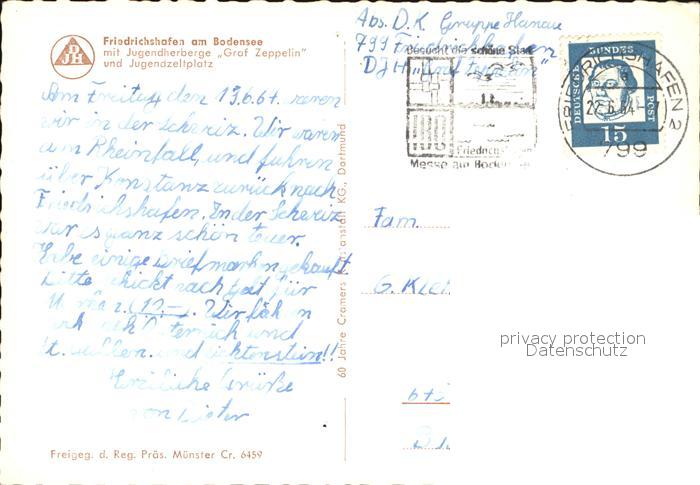 Friedrichshafen am Bodensee
mit Jugendherberge „Graf Zeppelin"
und Jugendzeltplatz
DJH
Am Freitag den 19.6.64. waren
wir in der Schweiz. Wir waren
am Rheinfall, und fuhren
über Konstanz zurück nach
Friedrichshafen. In der Schweiz
war s ganz schön teuer.
Habe einige Briefmarken gekauft
bitte schickt noch Geld für
(10.–). Wir
und
St. Gallen und Lichtenstein!!
Herzliche Grüße
von
Freigeg. d. Reg. Präs. Münster Cr. 6459
60 Jahre Cramers Kunstanstalt KG., Dortmund
Abs. D. K. Gruppe Hanau
799 Friedrichshafen
DJH „Graf Zeppelin"
Besucht die schöne Stadt
IBO
Friedrichshafen
Messe am Bodensee
DEUTSCHE
BUNDES
POST
15
FRIEDRICHSHAFEN 2
22.6.64
799
Fam.
G.
privacy protection
Datenschutz